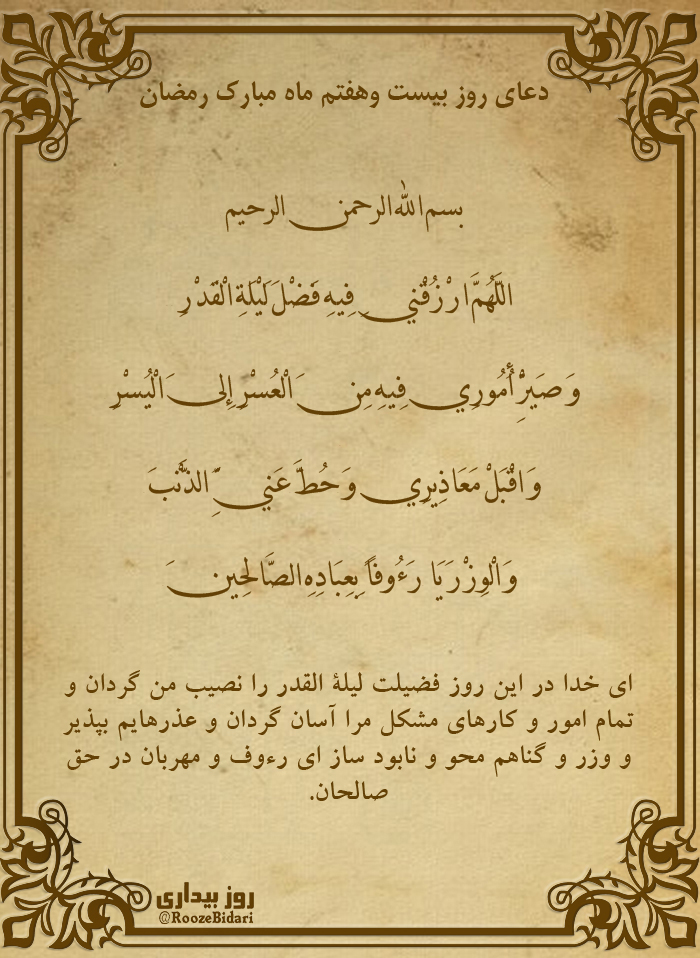 دعای روز بیست وهفتم ماه مبارک رمضان
بسم الله الرحمن الرحیم
اللَّهُمَّ ارْزُقْنِي فِيهِ فَضْلَ لَيْلَةِ الْقَدْرِ
وَ صَيِّرْ أُمُورِي فِيهِ مِنَ الْعُسْرِ إِلَى الْيُسْرِ
وَ اقْبَلْ مَعَاذِيرِي وَ حُطَّ عَنِّيَ الذَّنْبَ
وَ الْوِزْرَ يَا رَءُوفاً بِعِبَادِهِ الصَّالِحِينَ
ای خدا در این روز فضیلت لیلهٔ القدر را نصیب من گردان و
تمام امور و کارهای مشکل مرا آسان گردان و عذرهایم بپذیر
و وزر و گناهم محو و نابود ساز ای رءوف و مهربان در حق
صالحان.
روز بیداری
@RoozeBidari